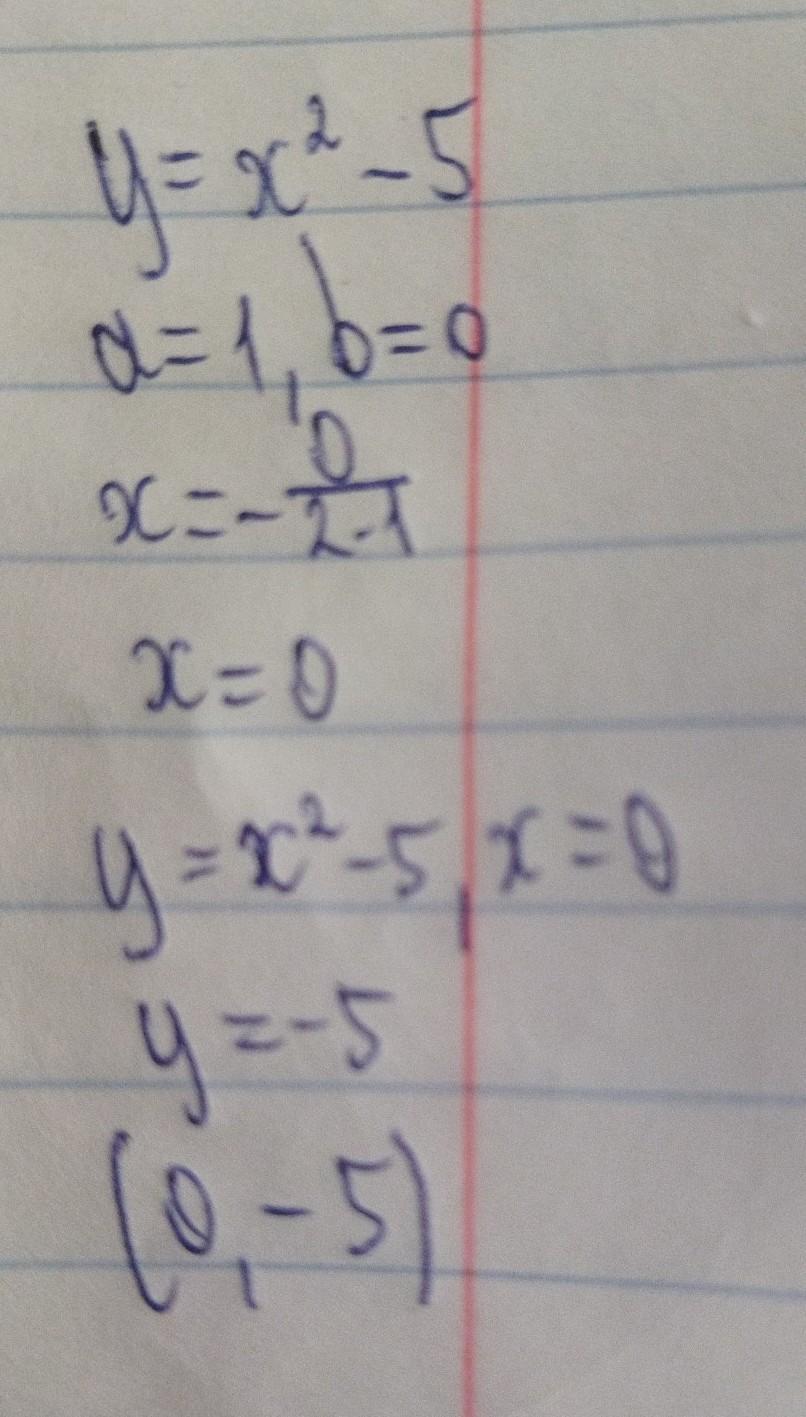 y = x² - 5
a = 1, b = 0
x = - 0/(2·1)
x = 0
y = x² - 5, x = 0
y = -5
(0, -5)